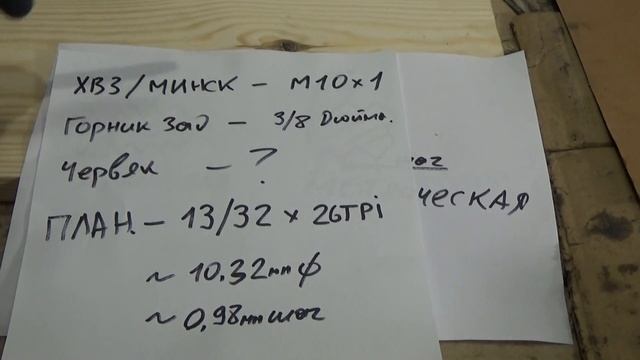 ХВЗ/МИНСК – М10х1
Горник Зад – 3/8 Дюйма.
Червяк – ?
ПЛАН. – 13/32 х 26TPi
~ 10.32мм ф
~ 0,98мм шаг
шаг
ЧЕСКАЯ